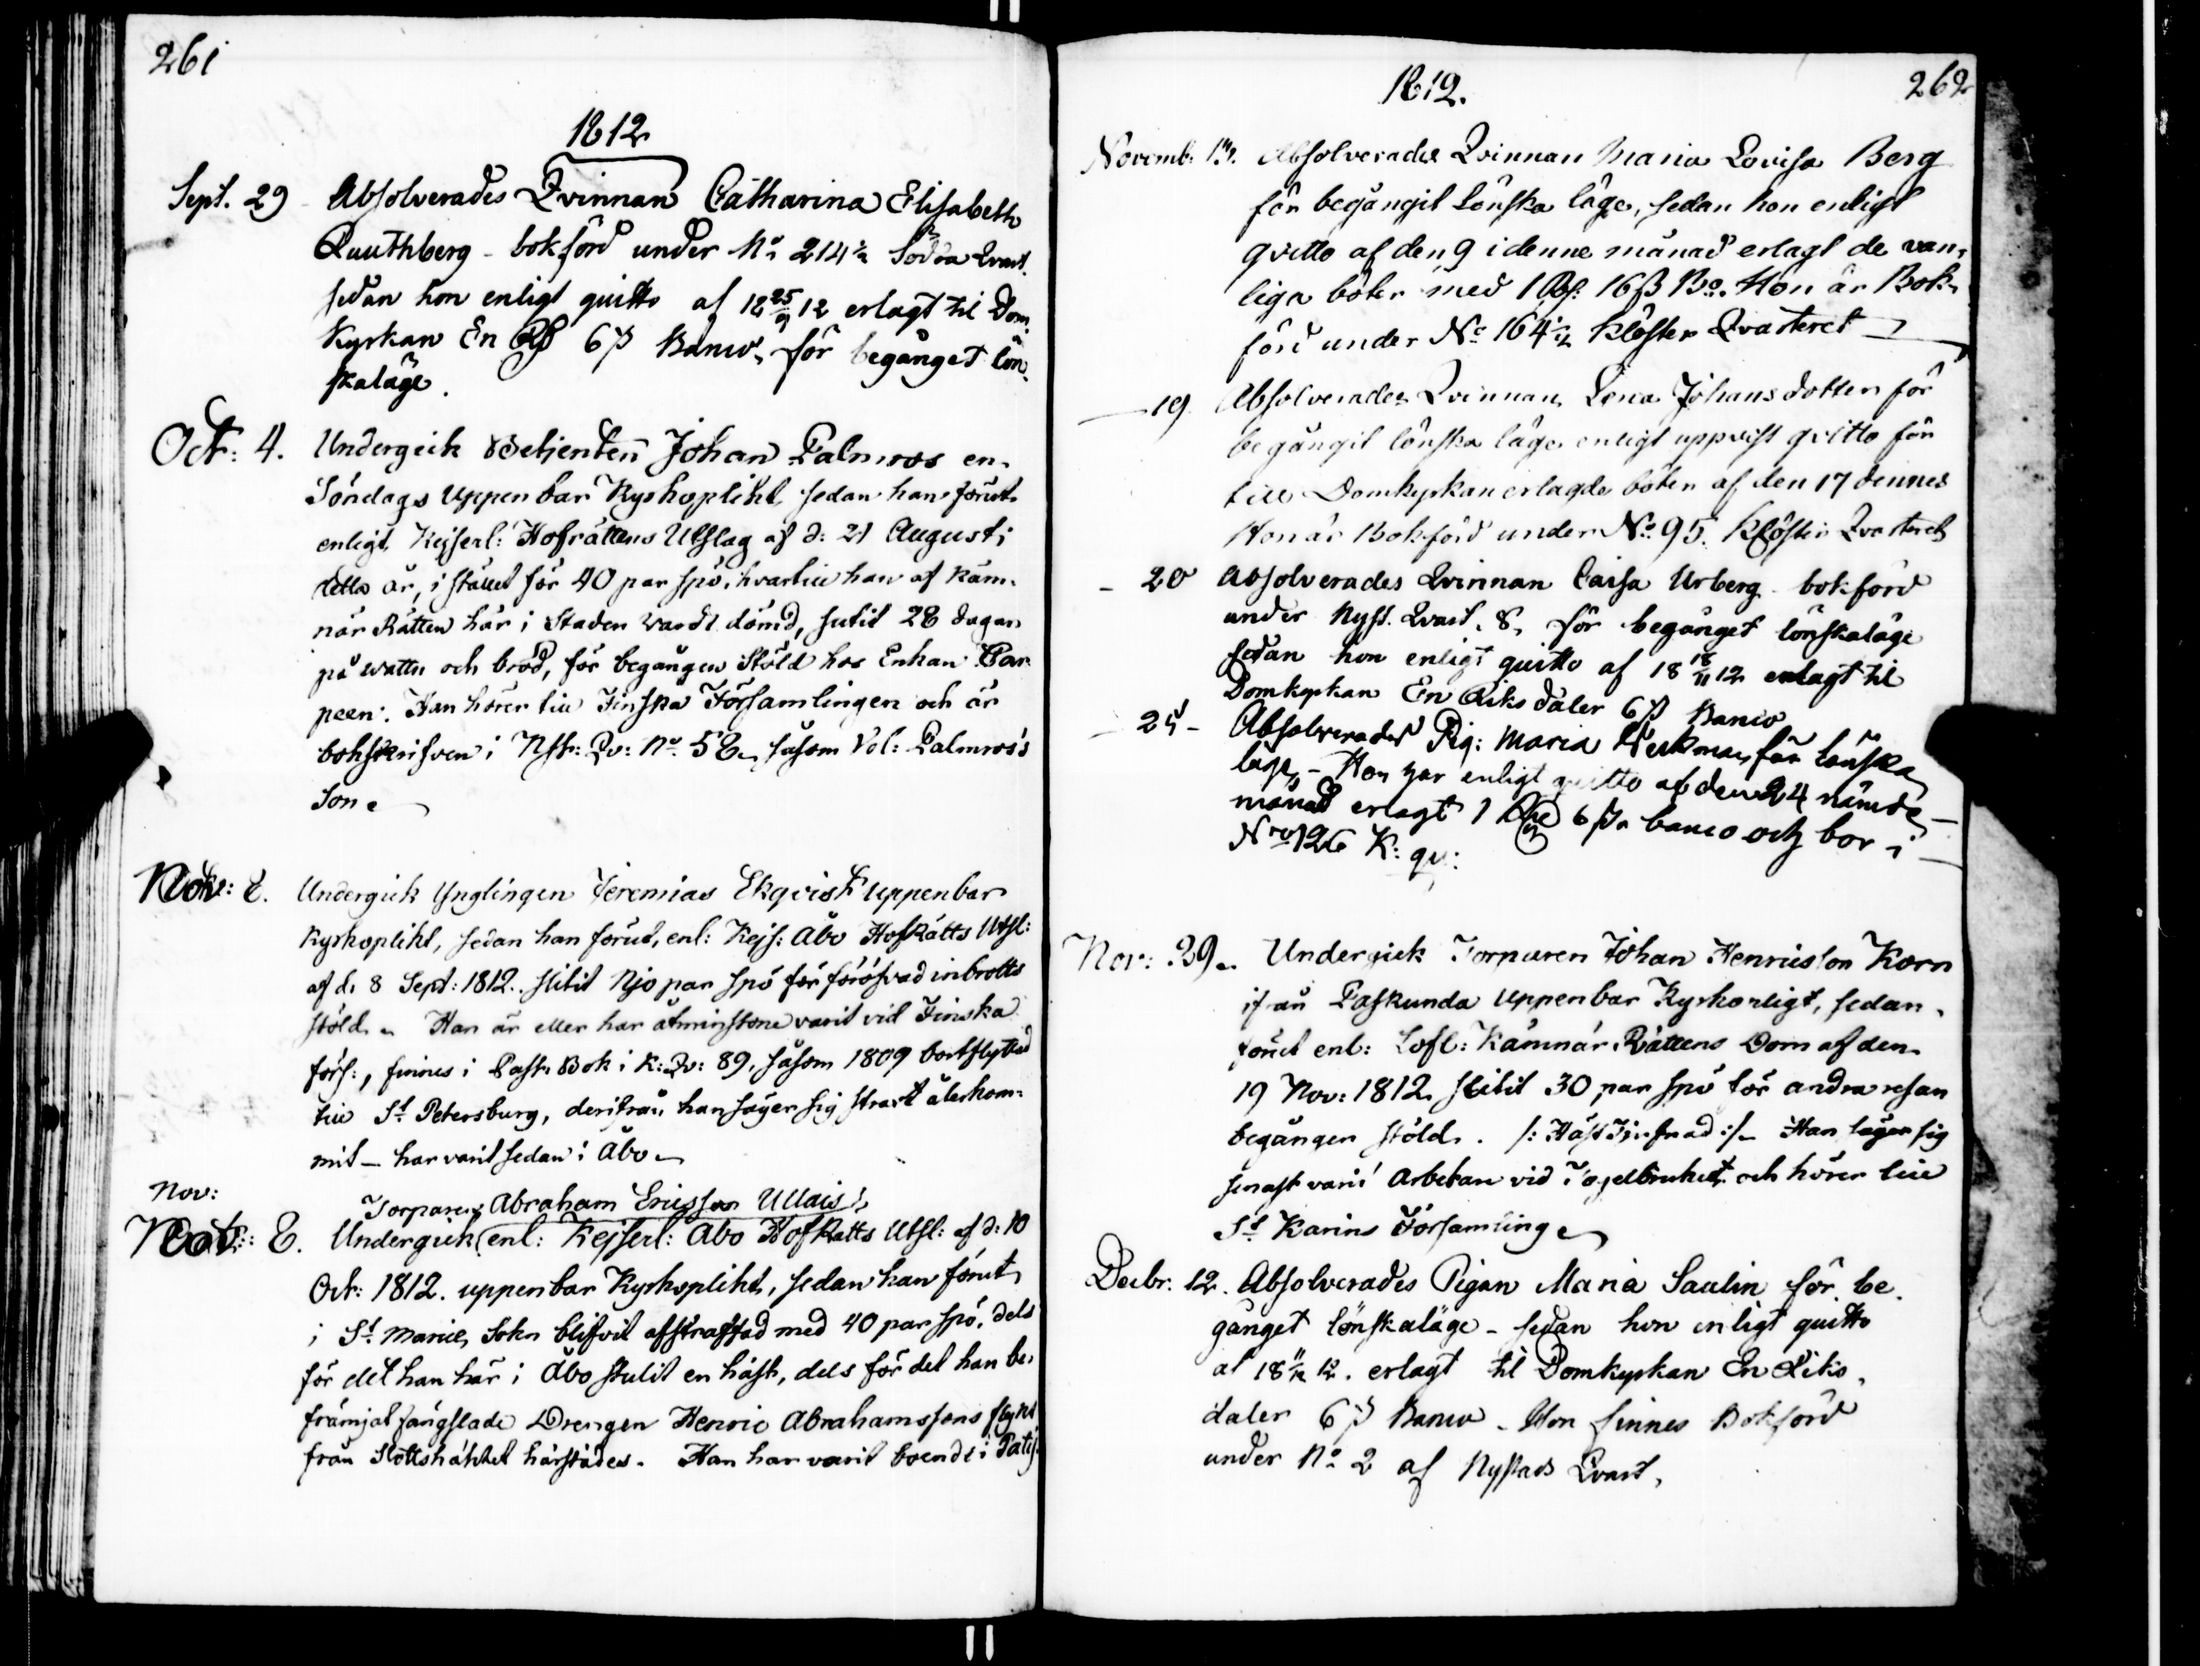 261
1812
Sept. 29 Absolverades Qvinnan Catharina Elisabeth
Quuthberg - bokförd under No 214 1/2 Södra Qvart.
sedan hon enligt quitto af 18 25/9 12 erlagt til Dom
kyrkan En Rd 6 ß Banco, för begånget lön
skaläge.
Oct: 4. Undergick Betjenten Johan Palmroos en
Söndags Uppenbar Kyrkoplikt, sedan han förut
enligt Kejserl: Hofrättens Utslag af d: 21 Augusti
detta år, i stället för 40 par spö, hvartill han af Käm-
närs Rätten här i Staden vardt dömd, sutit 28 dagar
på watten och bröd, för begången Stöld hos Enkan Par
peen. Han hörer till Finska Församlingen och är
bokskrifven i Nst: Qv: No 58, såsom Vol: Palmros's
Son
Nov: 8. Undergick Ynglingen Jeremias Ekqvist uppenbar
Kyrkoplikt, sedan han förut, enl: Kejs: Åbo HofRätts Utsl:
af d. 8 Sept: 1812. slitit Njo par spö för föröfvad inbrotts
stöld. Han är eller har åtminstone varit vid Finska
förs:, finnes i Past. Bok i K: Qv: 89, såsom 1809 bortflyttad
till St Petersburg, derifrån han säger sig strax återkom-
mit - har varit sedan i Åbo
Nov:
Torparen Abraham Ericsson Ullais
8. Undergick enl: Kejserl: Åbo HofRätts Utsl: af d: 10
Oct: 1812. uppenbar Kyrkoplikt, sedan han förut
i St Mariæ Sokn blifvit afstraffad med 40 par spö, dels
för det han här i Åbo stulit en häst, dels för det han be-
främjat fängslade Drengen Henric Abrahamssons flykt
från Slottshäktet härstädes. Han har varit boende i
1812. 262
Novemb: Absolverades Qvinnan Maria Lovisa Berg
för begångit Lönska läge, sedan hon enligt
qvitto af den 9 i denne månad erlagt de van-
liga böter med 1 Rd: 16 ß Bo. Hon är Bok-
förd under No 164 1/2 Kloster Qvarteret
- 19 Absolverades Qvinnan Lena Johansdotter för
begångit lönska läge enligt uppvist qvitto för
till Domkyrkan erlagde böter af den 17 dennes
Hon är Bokförd under No 95. Kloster Qvarteret
- 20 Absolverades Qvinnan Caisa Urberg bokförd
under Nyst. Qvart. 8, för begånget lönskaläge
sedan hon enligt quitto af 18 18/11 12 erlagt til
Domkyrkan En Riksdaler 6 ß Banco
- 25 - Absolverades Pig: Maria för Lönska
läge - Hon har enligt quitto af den 24 nämde
månad erlagt 1 Rd 6 ß banco och bor i
Nro 126 K: qv:
Nov: 29. Undergick Torparen Johan Henricsson Korn
ifrån Paskunda Uppenbar Kyrkopligt, sedan
förut enl: Lofl: Kämnärs Rättens Dom af den
19 Nov: 1812. slitit 30 par spö för andra resan
begången stöld. /: :/ Han säger sig
senast varit Arbetare vid Tegelbruket och hörer till
St Karins Församling
Decbr. 12. Absolverades Pigan Maria Saulin för be-
gånget lönskaläge - sedan hon enligt quitto
af 18 11/12 12. erlagt til Domkyrkan En Riks
daler 6 ß Banco - Hon finnes Bokförd
under No 2 af Nystads Qvart.